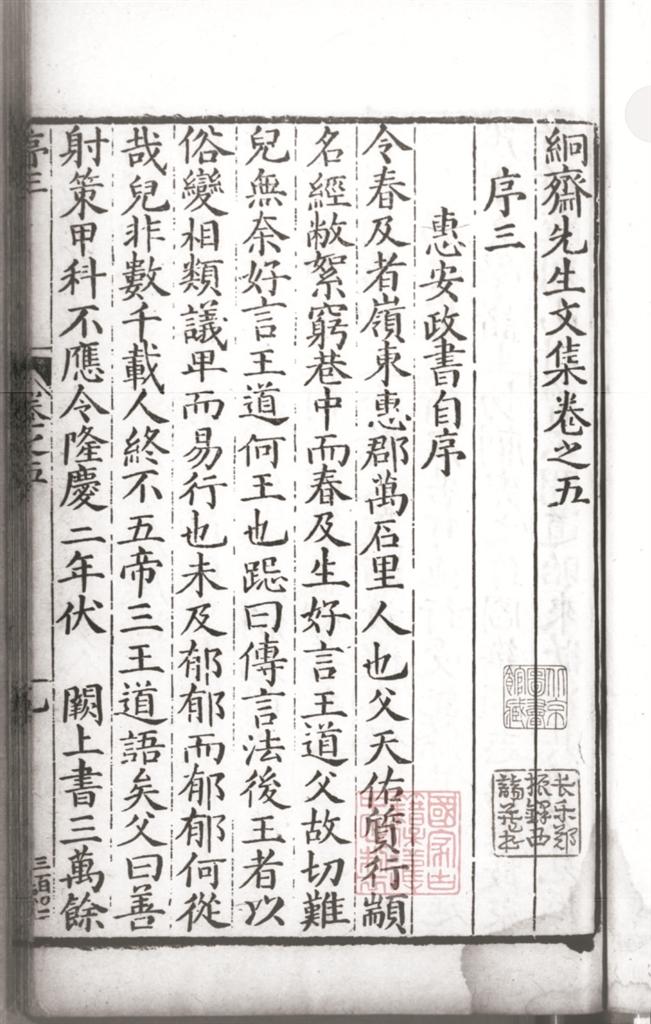 絅齋先生文集卷之五
序三
惠安政書自序
令春及者嶺東惠郡萬石里人也父天佑質行顓
名經敝絮窮巷中而春及生好言王道父故切難
兒無奈好言王道何王也跽曰傳言法後王者以
俗變相類議卑而易行也未及郁郁而郁郁何從
哉兒非數千載人終不五帝三王道語矣父曰善
射策甲科不應令隆慶二年伏 闕上書三萬餘
序三
卷之五
長樂鄭
振鐸西
諦藏書
北京
圖書
館藏